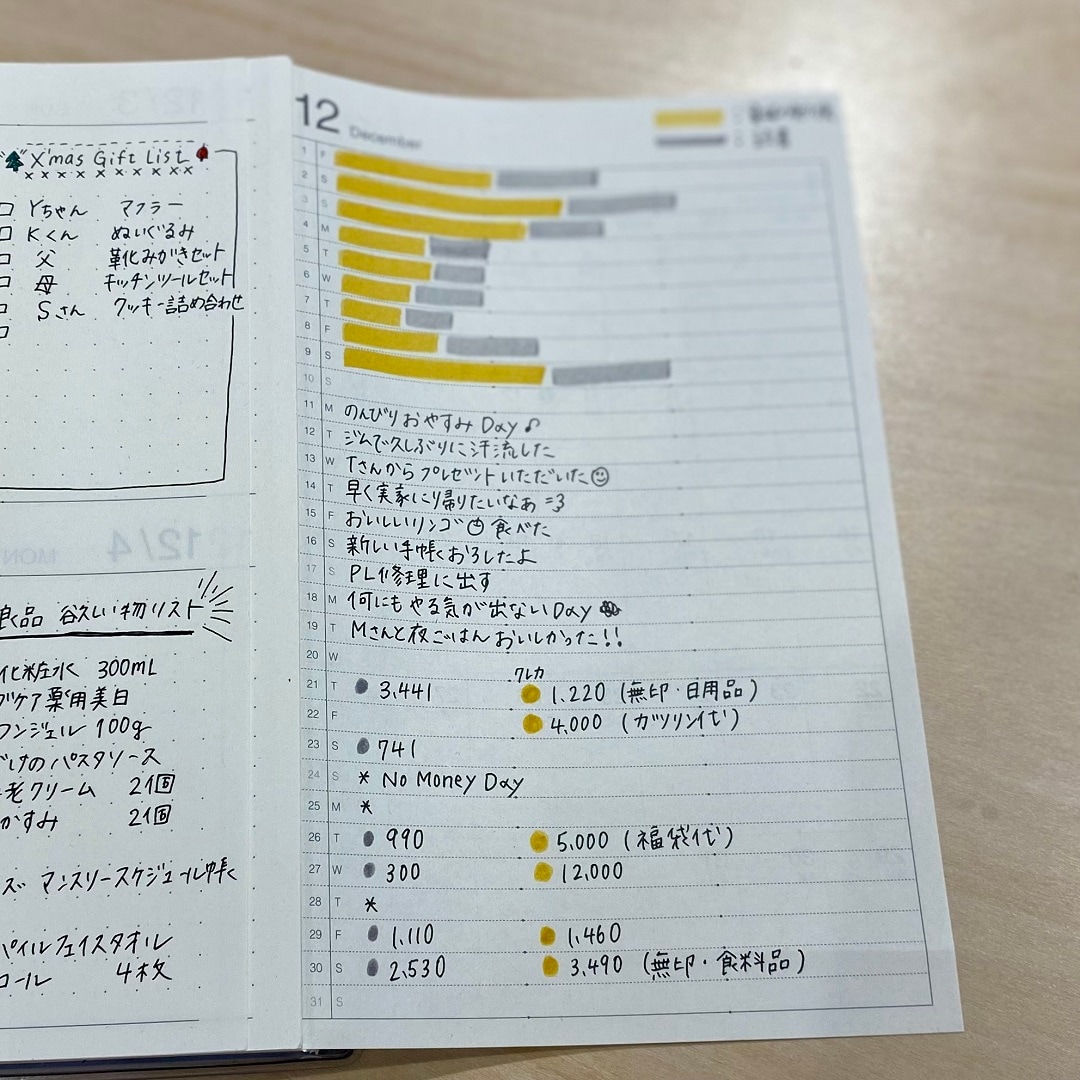 X'mas Gift List
x x x x x x x x x x
Yちゃん マフラー
Kくん ぬいぐるみ
父 革化みがきセット
母 キッチンツールセット
Sさん クッキー詰め合わせ
12/4 MON
良品 欲しい物リスト
化粧水 300mL
ケア薬用美白
ジェル 100g
けのパスタソース
老クリーム 2個
かすみ 2個
ズ マンスリースケジュール帳
パイルフェイスタオル
ロール 4枚
12 December
1 F
2 S
3 S
4 M
5 T
6 W
7 T
8 F
9 S
10 S
11 M のんびりおやすみDay♪
12 T ジムで久しぶりに汗流した
13 W Tさんからプレゼントいただいた☺
14 T 早く実家に帰りたいなぁ =3
15 F おいしいリンゴ食べた
16 S 新しい手帳おろしたよ
17 S PC修理に出す
18 M 何にもやる気が出ないDay
19 T Mさんと夜ごはんおいしかった!!
20 W
クレカ
21 T 3,441 1,220 (無印・日用品)
22 F 4,000 (ガソリン代)
23 S 741
24 S * No Money Day
25 M *
26 T 990 5,000 (福袋代)
27 W 300 12,000
28 T *
29 F 1,110 1,460
30 S 2,530 3,490 (無印・食料品)
31 S